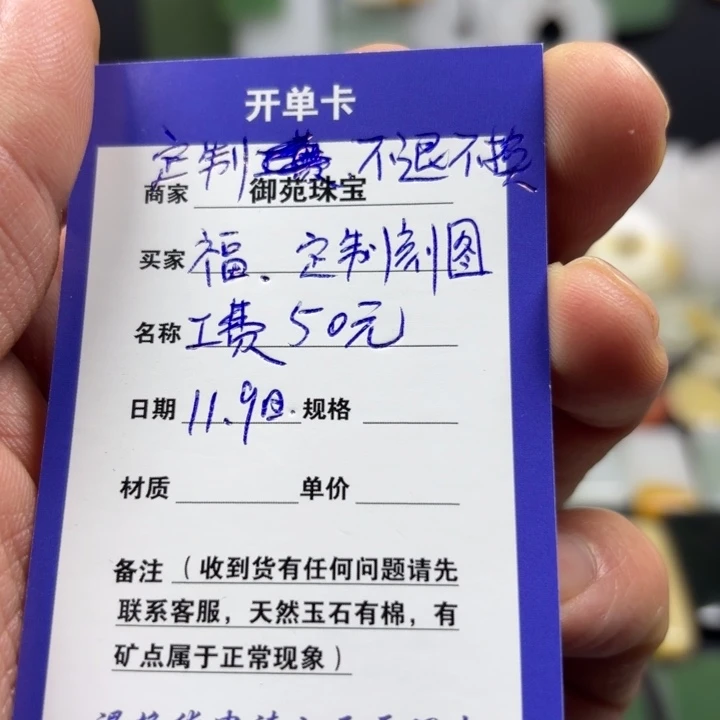 开单卡
定制 不退不换
商家 御苑珠宝
买家 福、定制刻图
名称 工费50元
日期 11.9日. 规格
材质 单价
备注（收到货有任何问题请先
联系客服，天然玉石有棉，有
矿点属于正常现象）